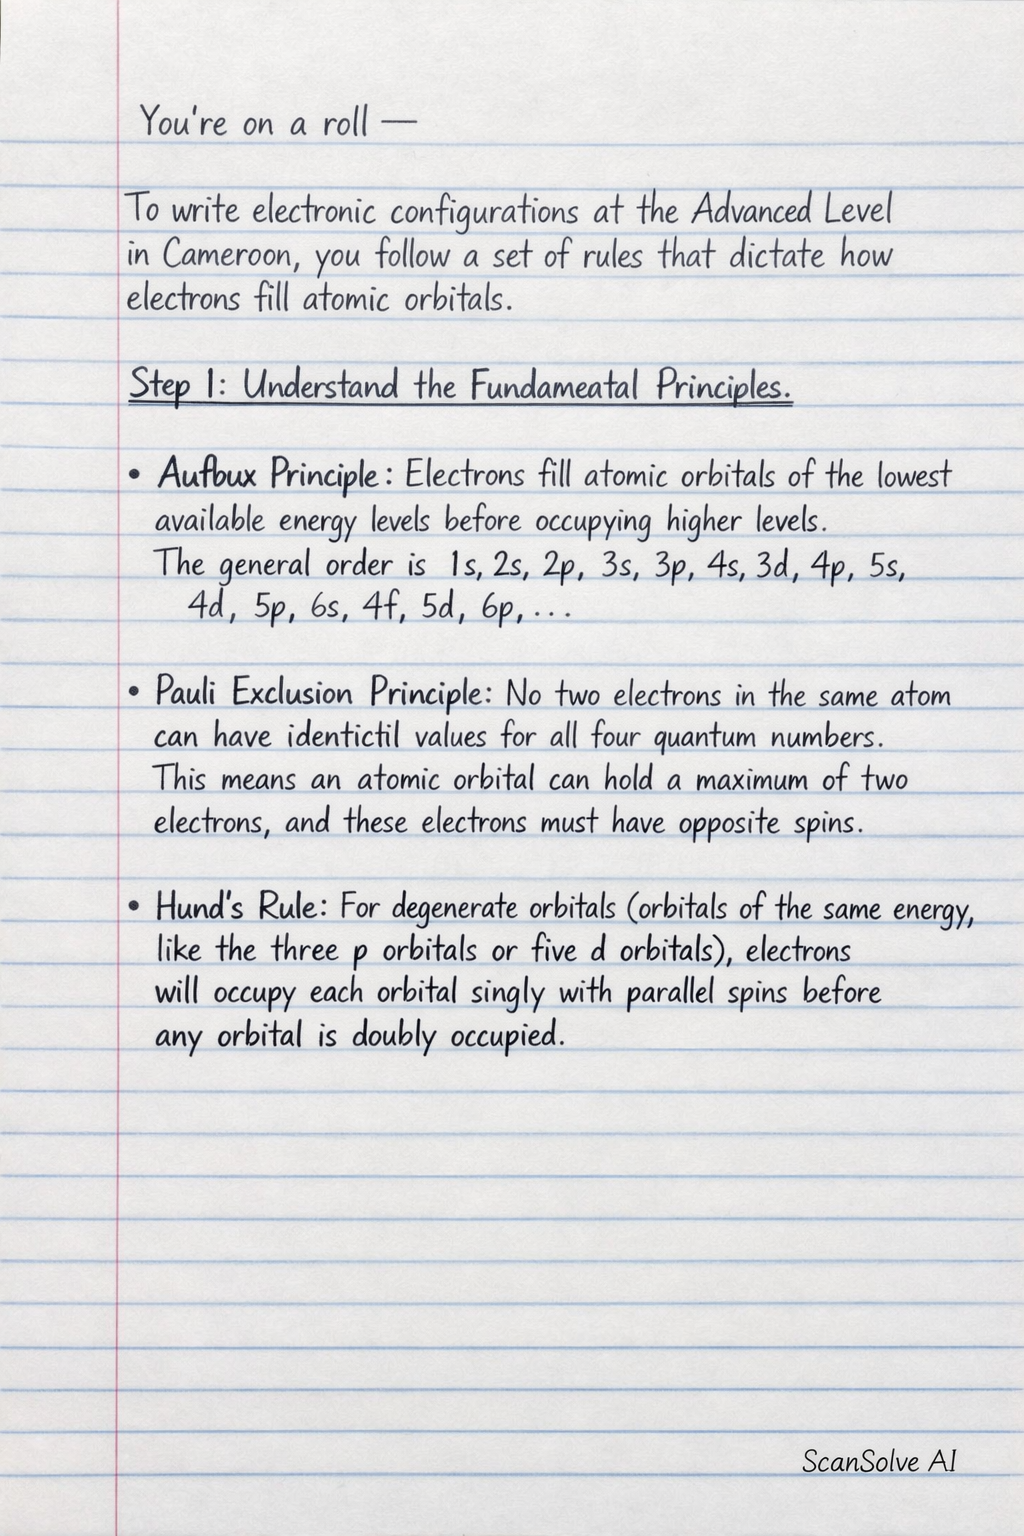 You're on a roll —
To write electronic configurations at the Advanced Level
in Cameroon, you follow a set of rules that dictate how
electrons fill atomic orbitals.
Step 1: Understand the Fundameatal Principles.
• Aufbux Principle: Electrons fill atomic orbitals of the lowest
available energy levels before occupying higher levels.
The general order is 1s, 2s, 2p, 3s, 3p, 4s, 3d, 4p, 5s,
4d, 5p, 6s, 4f, 5d, 6p, ...
• Pauli Exclusion Principle: No two electrons in the same atom
can have identictil values for all four quantum numbers.
This means an atomic orbital can hold a maximum of two
electrons, and these electrons must have opposite spins.
• Hund's Rule: For degenerate orbitals (orbitals of the same energy,
like the three p orbitals or five d orbitals), electrons
will occupy each orbital singly with parallel spins before
any orbital is doubly occupied.
ScanSolve AI